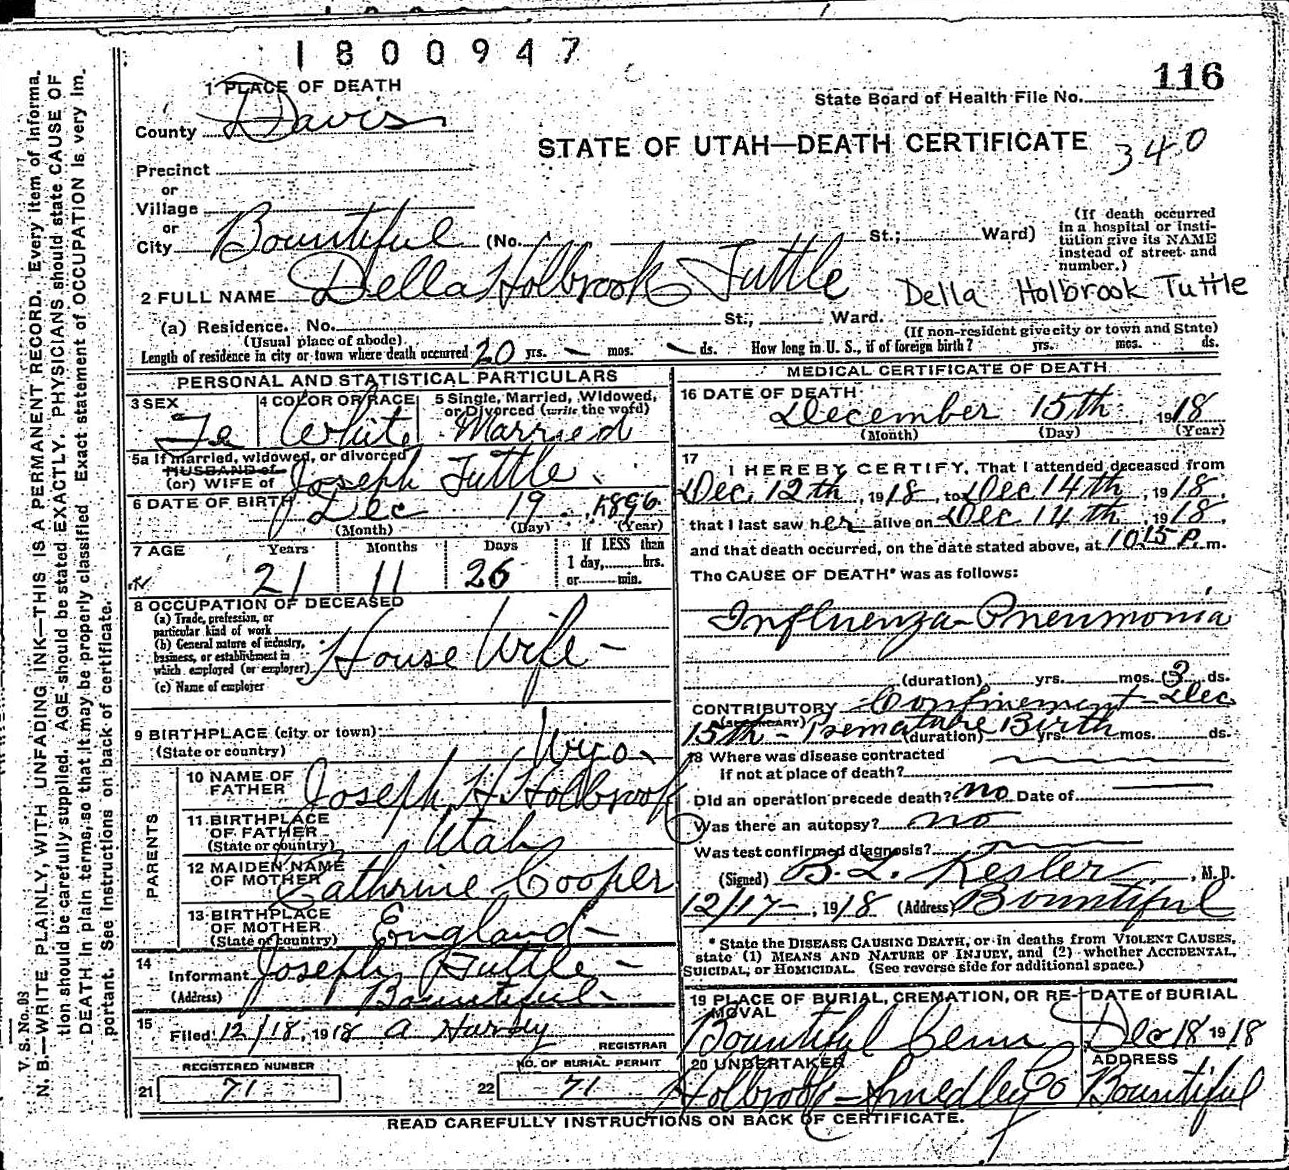 1800947
116
1 PLACE OF DEATH
State Board of Health File No.
County Davis
STATE OF UTAH—DEATH CERTIFICATE
340
Precinct
or
Village
or
City Bountiful (No. St.; Ward)
(If death occurred in a hospital or institution give its NAME instead of street and number.)
2 FULL NAME Della Holbrook Tuttle
Della Holbrook Tuttle
(a) Residence. No. St., Ward.
(Usual place of abode)
(If non-resident give city or town and State)
Length of residence in city or town where death occurred 20 yrs. — mos. — ds. How long in U. S., if of foreign birth? yrs. mos. ds.
PERSONAL AND STATISTICAL PARTICULARS
3 SEX Fe
4 COLOR OR RACE White
5 Single, Married, Widowed, or Divorced (write the word) Married
5a If married, widowed, or divorced
HUSBAND of
(or) WIFE of Joseph Tuttle
6 DATE OF BIRTH Dec 19, 1896
(Month) (Day) (Year)
7 AGE Years Months Days If LESS than
21 11 26 1 day, hrs.
or min.
8 OCCUPATION OF DECEASED
(a) Trade, profession, or
particular kind of work
(b) General nature of industry,
business, or establishment in
which employed (or employer)
House Wife —
(c) Name of employer
9 BIRTHPLACE (city or town)
(State or country) Wyo.
PARENTS
10 NAME OF FATHER Joseph H. Holbrook
11 BIRTHPLACE OF FATHER
(State or country) Utah
12 MAIDEN NAME OF MOTHER Cathrine Cooper
13 BIRTHPLACE OF MOTHER
(State or country) England —
14
Informant Joseph Tuttle —
(Address) Bountiful —
15
Filed 12/18, 1918 A
REGISTRAR
REGISTERED NUMBER
21 71
NO. OF BURIAL PERMIT
22 71
MEDICAL CERTIFICATE OF DEATH
16 DATE OF DEATH
December 15th 1918
(Month) (Day) (Year)
17
I HEREBY CERTIFY, That I attended deceased from
Dec. 12th, 1918, to Dec 14th, 1918,
that I last saw her alive on Dec 14th, 1918,
and that death occurred, on the date stated above, at 10.15 P. m.
The CAUSE OF DEATH* was as follows:
Influenza-Pneumonia
(duration) yrs. mos. 3 ds.
CONTRIBUTORY Confinement — Dec
(SECONDARY)
15th — Premature Birth
(duration) yrs. mos. ds.
18 Where was disease contracted
if not at place of death?
Did an operation precede death? no Date of
Was there an autopsy? no
Was test confirmed diagnosis?
(Signed) B. L. Kesler, M. D.
12/17—, 1918 (Address) Bountiful
* State the DISEASE CAUSING DEATH, or in deaths from VIOLENT CAUSES,
state (1) MEANS AND NATURE OF INJURY, and (2) whether ACCIDENTAL,
SUICIDAL, or HOMICIDAL. (See reverse side for additional space.)
19 PLACE OF BURIAL, CREMATION, OR REMOVAL
Bountiful Cem
DATE of BURIAL
Dec 18 1918
20 UNDERTAKER
Holbrook-Smedley Co
ADDRESS
Bountiful
READ CAREFULLY INSTRUCTIONS ON BACK OF CERTIFICATE.
V S. No. 83
N. B.—WRITE PLAINLY, WITH UNFADING INK—THIS IS A PERMANENT RECORD. Every item of informa-
tion should be carefully supplied. AGE should be stated EXACTLY. PHYSICIANS should state CAUSE OF
DEATH in plain terms, so that it may be properly classified. Exact statement of OCCUPATION is very im-
portant. See instructions on back of certificate.